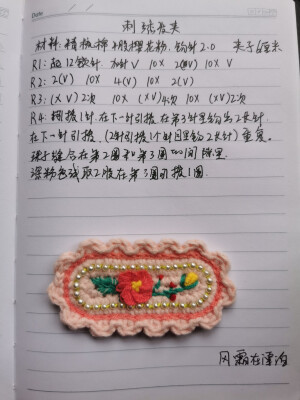 刺绣发夹
材料:精梳棉4股樱花粉,钩针2.0 夹子6厘米
R1:起12锁针,加针V 10X 2(W)10X V
R2:2(V) 10X 4(V) 10X 2(V)
R3:(XV)2次 10X (XV)4次 10X (XV)2次
R4:1针 在下一针引拔 在第3针里钩5长针
在下一针引拔.(2针引拔1针目里钩5长针)重复.
珠子缝合在第2圈和第3圈中间缝里.
深粉色线取2股在第3圈引拔1圈.
风霜在漂泊